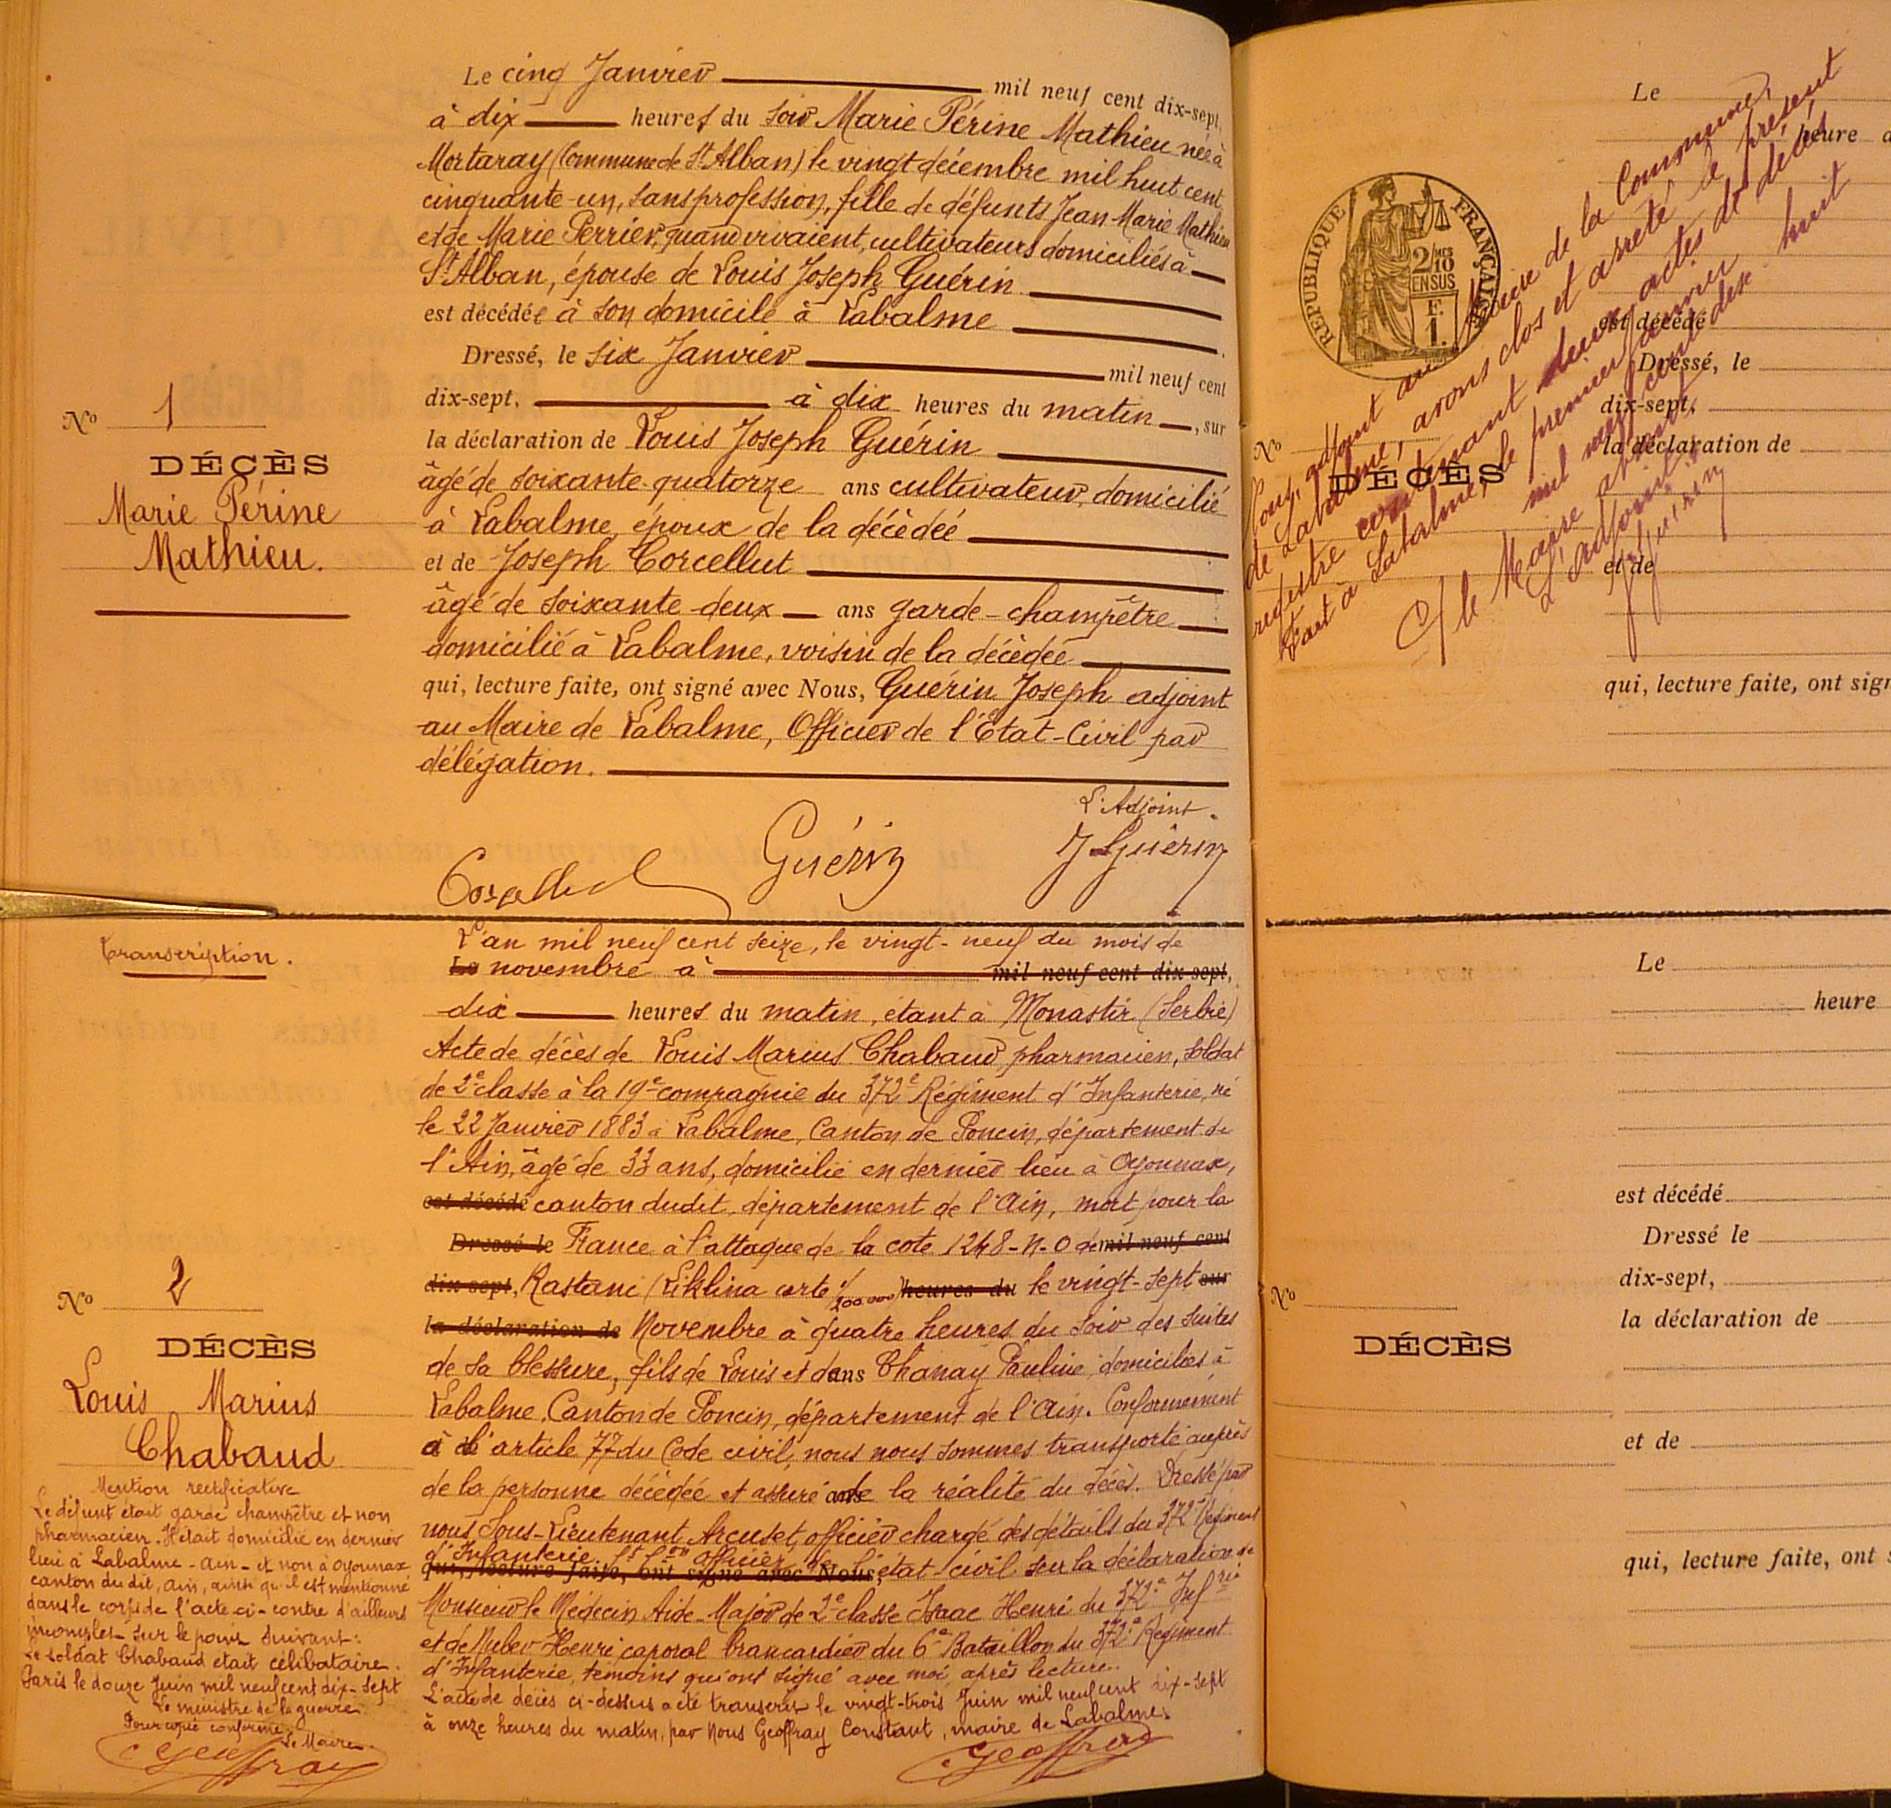 Le cinq Janvier mil neuf cent dix-sept,
à dix heures du soir Marie Périne Mathieu née à
Mortaray (Commune de St Alban) le vingt décembre mil huit cent
cinquante-un, sans profession, fille de défunts Jean Marie Mathieu
et de Marie Perrier, quand vivaient, cultivateurs domiciliés à
St Alban, épouse de Louis Joseph Guérin
est décédée à son domicile à Labalme
Dressé, le six Janvier mil neuf cent
dix-sept, à dix heures du matin, sur
la déclaration de Louis Joseph Guérin
âgé de soixante-quatorze ans cultivateur, domicilié
à Labalme, époux de la décédée
et de Joseph Corcellut
âgé de soixante-deux ans garde-champêtre
domicilié à Labalme, voisin de la décédée
qui, lecture faite, ont signé avec Nous, Guérin Joseph adjoint
au Maire de Labalme, Officier de l'Etat-Civil par
délégation.
L'Adjoint.
Guérin
J Guérin
No 1
DÉCÈS
Marie Périne
Mathieu.
Transcription.
L'an mil neuf cent seize, le vingt-neuf du mois de
Le novembre à mil neuf cent dix-sept,
dix heures du matin, étant à Monastir (Serbie)
Acte de décès de Louis Marius Chabaud, pharmacien, soldat
de 2e classe à la 19e compagnie du 372e Régiment d'Infanterie, né
le 22 Janvier 1883 à Labalme, Canton de Poncin, département de
l'Ain, âgé de 33 ans, domicilié en dernier lieu à Oyonnax,
est décédé canton dudit, département de l'Ain, mort pour la
Dressé le France à l'attaque de la cote 1248-N-O de mil neuf cent
dix-sept, Rastani (Liklina carte 1/200.000) heures du le vingt-sept sur
la déclaration de Novembre à quatre heures du soir des suites
de sa blessure, fils de Louis et dans Chanay Pauline domiciliés à
Labalme, Canton de Poncin, département de l'Ain. Conformément
à l'article 77 du Code civil, nous nous sommes transporté auprès
de la personne décédée et assuré de la réalité du décès. Dressé par
nous Sous-Lieutenant Arcuset, officier chargé des détails du 372e Régiment
d'Infanterie officier de
qui, lecture faite, ont signé avec Nous, état-civil sur la déclaration de
Monsieur le Médecin Aide-Major de 2e classe Isaac Henri du 372e Infrie
et de Henri caporal brancardier du 6e Bataillon du 372e Régiment
d'Infanterie, témoins qui ont signé avec moi après lecture.
L'acte de décès ci-dessus a été transcrit le vingt-trois Juin mil neuf cent dix-sept
à onze heures du matin, par Nous Geoffray Constant, maire de Labalme.
C. Geoffray
No 2
DÉCÈS
Louis Marius
Chabaud
Mention rectificative
Le défunt était garde champêtre et non
pharmacien. Il était domicilié en dernier
lieu à Labalme - Ain - et non à Oyonnax
canton du dit, Ain, ainsi qu'il est mentionné
dans le corps de l'acte ci-contre d'ailleurs
incomplet sur le point suivant:
Le soldat Chabaud était célibataire.
Paris le douze Juin mil neuf cent dix-sept
Le ministre de la guerre.
Pour copie conforme.
Le Maire.
C. Geoffray
RÉPUBLIQUE FRANÇAISE
2/10 EN SUS
F. 1.
Nous, adjoint au Maire de la Commune,
de Labalme, avons clos et arrêté le présent
registre contenant deux actes de décès
Fait à Labalme, le premier janvier
mil neuf cent dix huit
P/ le Maire absent
L'adjoint
J Guérin
Le
heure d
est décédé
Dressé, le
dix-sept,
la déclaration de
No
DÉCÈS
et de
qui, lecture faite, ont sign
Le
heure
est décédé
Dressé le
dix-sept,
la déclaration de
No
DÉCÈS
et de
qui, lecture faite, ont s